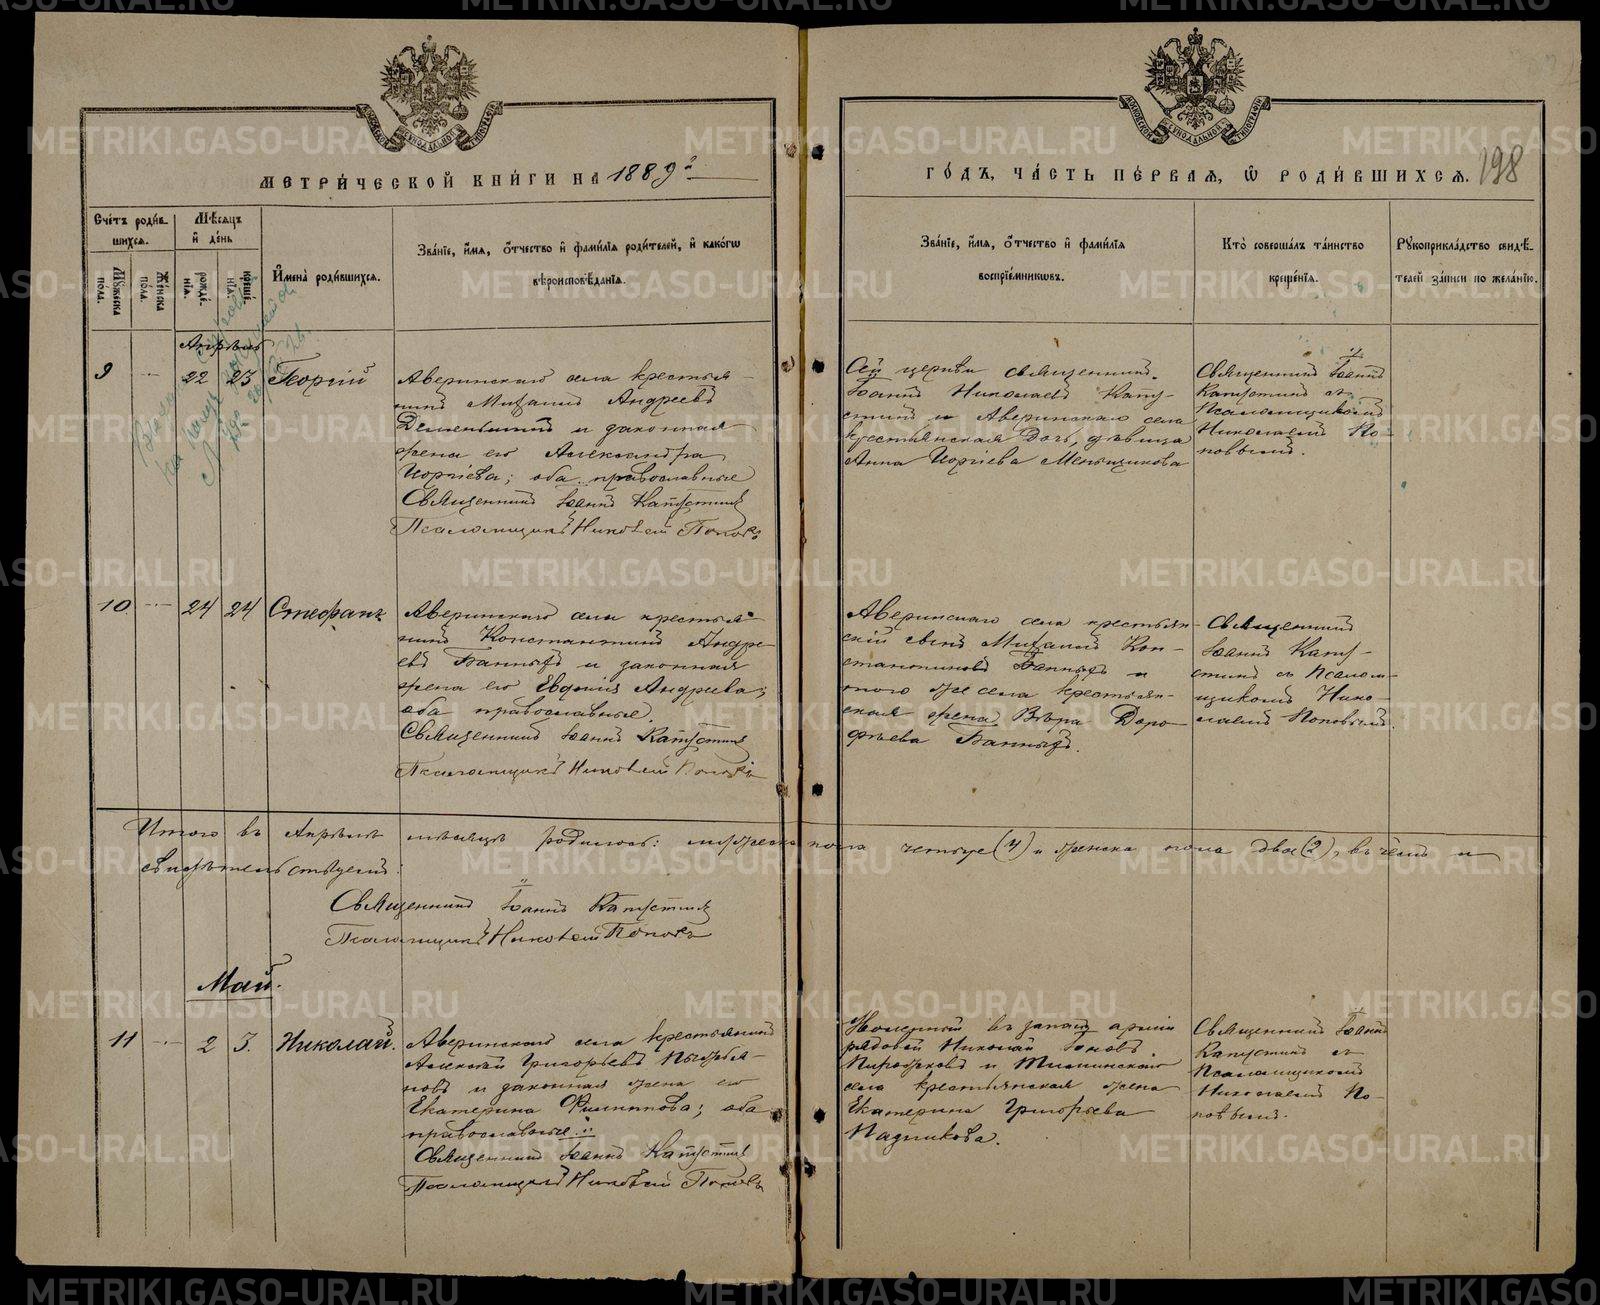 МЕТРИ́ЧЕСКОЙ КНИ́ГИ НА 1889й
ГО́ДЪ, ЧА́СТЬ ПЕ́РВАЯ, Ѡ РОДИ́ВШИХСЯ. 198
Сче́тъ роди́вшихся.
Мѣ́сяцъ и де́нь
Мꙋ́жеска пола.
Же́нска пола.
рожде́нїя.
креще́нїя.
И҆мена̀ роди́вшихся.
Зва́нїе, и҆́мя, о҆́тчество и҆ фами́лїя роди́телей, и҆ како́гѡ
вѣроисповѣ́данїя.
Зва́нїе, и҆́мя, о҆́тчество и҆ фами́лїя
воспрїе́мникѡвъ.
Кто̀ соверша́лъ та́инство
креще́нїя.
Рꙋкоприкла́дство свидѣ́-
телей за́писи по жела́нїю.
Апрѣль
9 22 23 Георгій
Аверинскаго села крестья-
нинъ Михаилъ Андреевъ
Деменьшинъ и законная
жена его Александра
Георгіева; оба православные
Священникъ Іоаннъ Капустинъ
Псаломщикъ Николай Поповъ
Сей церкви священникъ
Іоаннъ Николаевъ Капу-
стинъ и Аверинскаго села
крестьянская дочь, дѣвица
Анна Георгіева Меньшикова
Священникъ Іоаннъ
Капустинъ съ
Псаломщикомъ
Николаемъ По-
повымъ.
10 24 24 Стефанъ
Аверинскаго села крестья-
нинъ Константинъ Андре-
евъ Банныхъ и законная
жена его Евдокія Андреева;
оба православные.
Священникъ Іоаннъ Капустинъ
Псаломщикъ Николай Поповъ
Аверинскаго села крестьян-
скій сынъ Михаилъ Кон-
стантиновъ Банныхъ и
того же села крестьян-
ская жена Вѣра Доро-
фѣева Банныхъ.
Священникъ
Іоаннъ Капу-
стинъ съ Псалом-
щикомъ Нико-
лаемъ Поповымъ.
Итого въ Апрѣлѣ мѣсяцѣ родилось: мужеска пола четыре (4) и женска пола два (2), въ чемъ и
свидѣтельствуемъ:
Священникъ Іоаннъ Капустинъ
Псаломщикъ Николай Поповъ
Май.
11 2 3. Николай.
Аверинскаго села крестьянинъ
Алексѣй Григорьевъ
и законная жена его
Екатерина Филиппова; оба
православные.
Священникъ Іоаннъ Капустинъ
Псаломщикъ Николай Поповъ
въ запасъ арміи
рядовой Николай Іоновъ
Пирожковъ и
села крестьянская жена
Екатерина Григорьева
Падчикова.
Священникъ Іоаннъ
Капустинъ съ
Псаломщикомъ
Николаемъ По-
повымъ.
METRIKI.GASO-URAL.RU